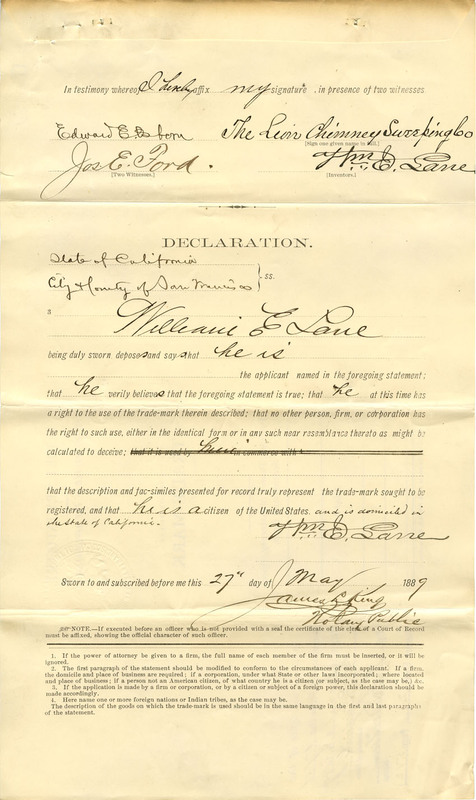 In testimony whereof, I hereby affix my signature, in presence of two witnesses
Edward E. Osborn The Lion Chimney Sweeping Co
[Sign one given name in full.]
Jos. E. Ford. Wm E. Lane
[Two Witnesses.] [Inventors.]
DECLARATION.
State of California
City & County of San Francisco } ss.
3
William E Lane
being duly sworn deposes and says that he is
the applicant named in the foregoing statement;
that he verily believes that the foregoing statement is true; that he at this time has
a right to the use of the trade-mark therein described; that no other person, firm, or corporation has
the right to such use, either in the identical form or in any such near resemblance thereto as might be
calculated to deceive; that it is used by him in commerce with
that the description and fac-similes presented for record truly represent the trade-mark sought to be
registered, and that he is a citizen of the United States. and is domiciled in
the State of California.
Wm E. Lane
Sworn to and subscribed before me this 27" day of May 1889
James L King
Notary Public
NOTE.—If executed before an officer who is not provided with a seal the certificate of the clerk of a Court of Record
must be affixed, showing the official character of such officer.
1. If the power of attorney be given to a firm, the full name of each member of the firm must be inserted, or it will be
ignored.
2. The first paragraph of the statement should be modified to conform to the circumstances of each applicant. If a firm,
the domicile and place of business are required; if a corporation, under what State or other laws incorporated; where located
and place of business; if a person not an American citizen, of what country he is a citizen (or subject, as the case may be,) &c.
3. If the application is made by a firm or corporation, or by a citizen or subject of a foreign power, this declaration should be
made accordingly.
4. Here name one or more foreign nations or Indian tribes, as the case may be.
The description of the goods on which the trade-mark is used should be in the same language in the first and last paragraphs
of the statement.